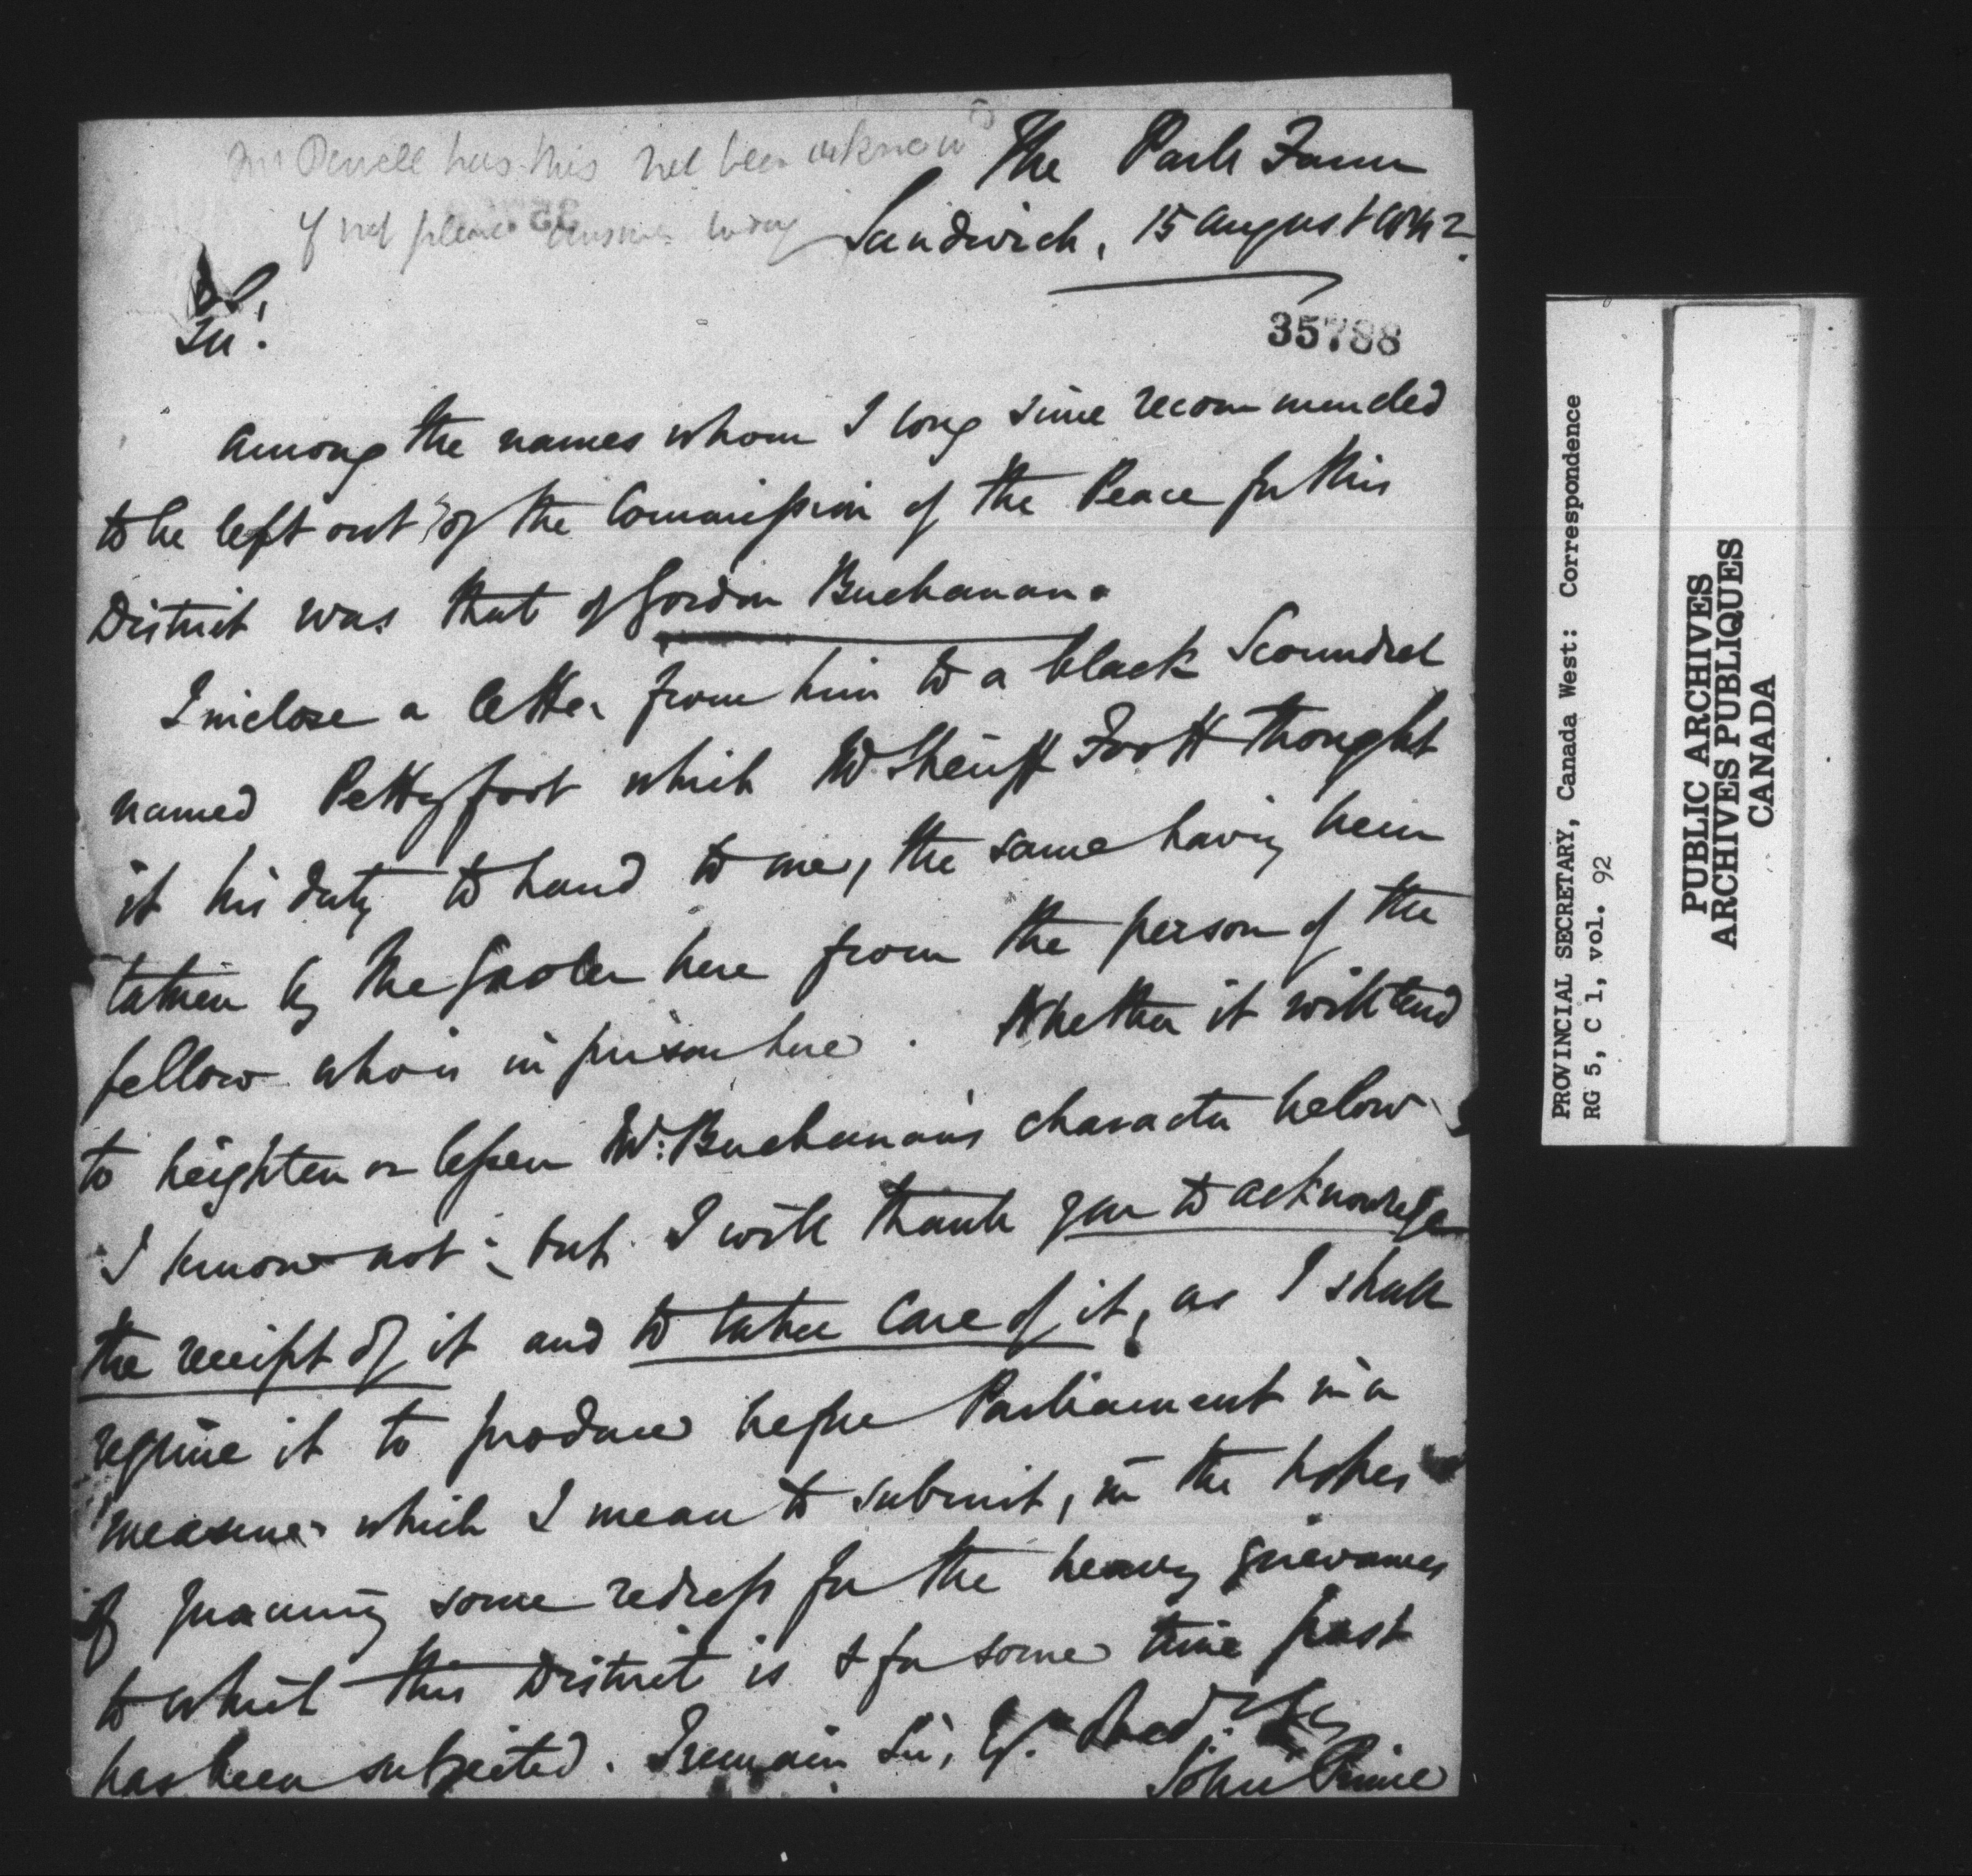 Mr Powell has this not been acknowd
if not please answer today
The Park Farm
Sandwich, 15 August 1842.
35788
Sir!
Among the names whom I long since recommended
to be left out of the Commission of the Peace for this
District was that of Gordon Buchanan.
I inclose a letter from him to a black Scoundrel
named Pettyfoot which Mr. Sheriff Foott thought
it his duty to hand to me, the same having been
taken by the Gaoler here from the person of the
fellow who is in prison here. Whether it will tend
to heighten or lessen Mr. Buchanan's character below
I know not; but I will thank you to acknowledge
the receipt of it and to take care of it, as I shall
require it to produce before Parliament in a
measure which I mean to submit, in the hopes
of procuring some redress for the heavy grievances
to which this District is & for some time past
has been subjected. I remain Sir, Yr.
John Prince
PROVINCIAL SECRETARY, Canada West: Correspondence
RG 5, C 1, vol. 92
PUBLIC ARCHIVES
ARCHIVES PUBLIQUES
CANADA